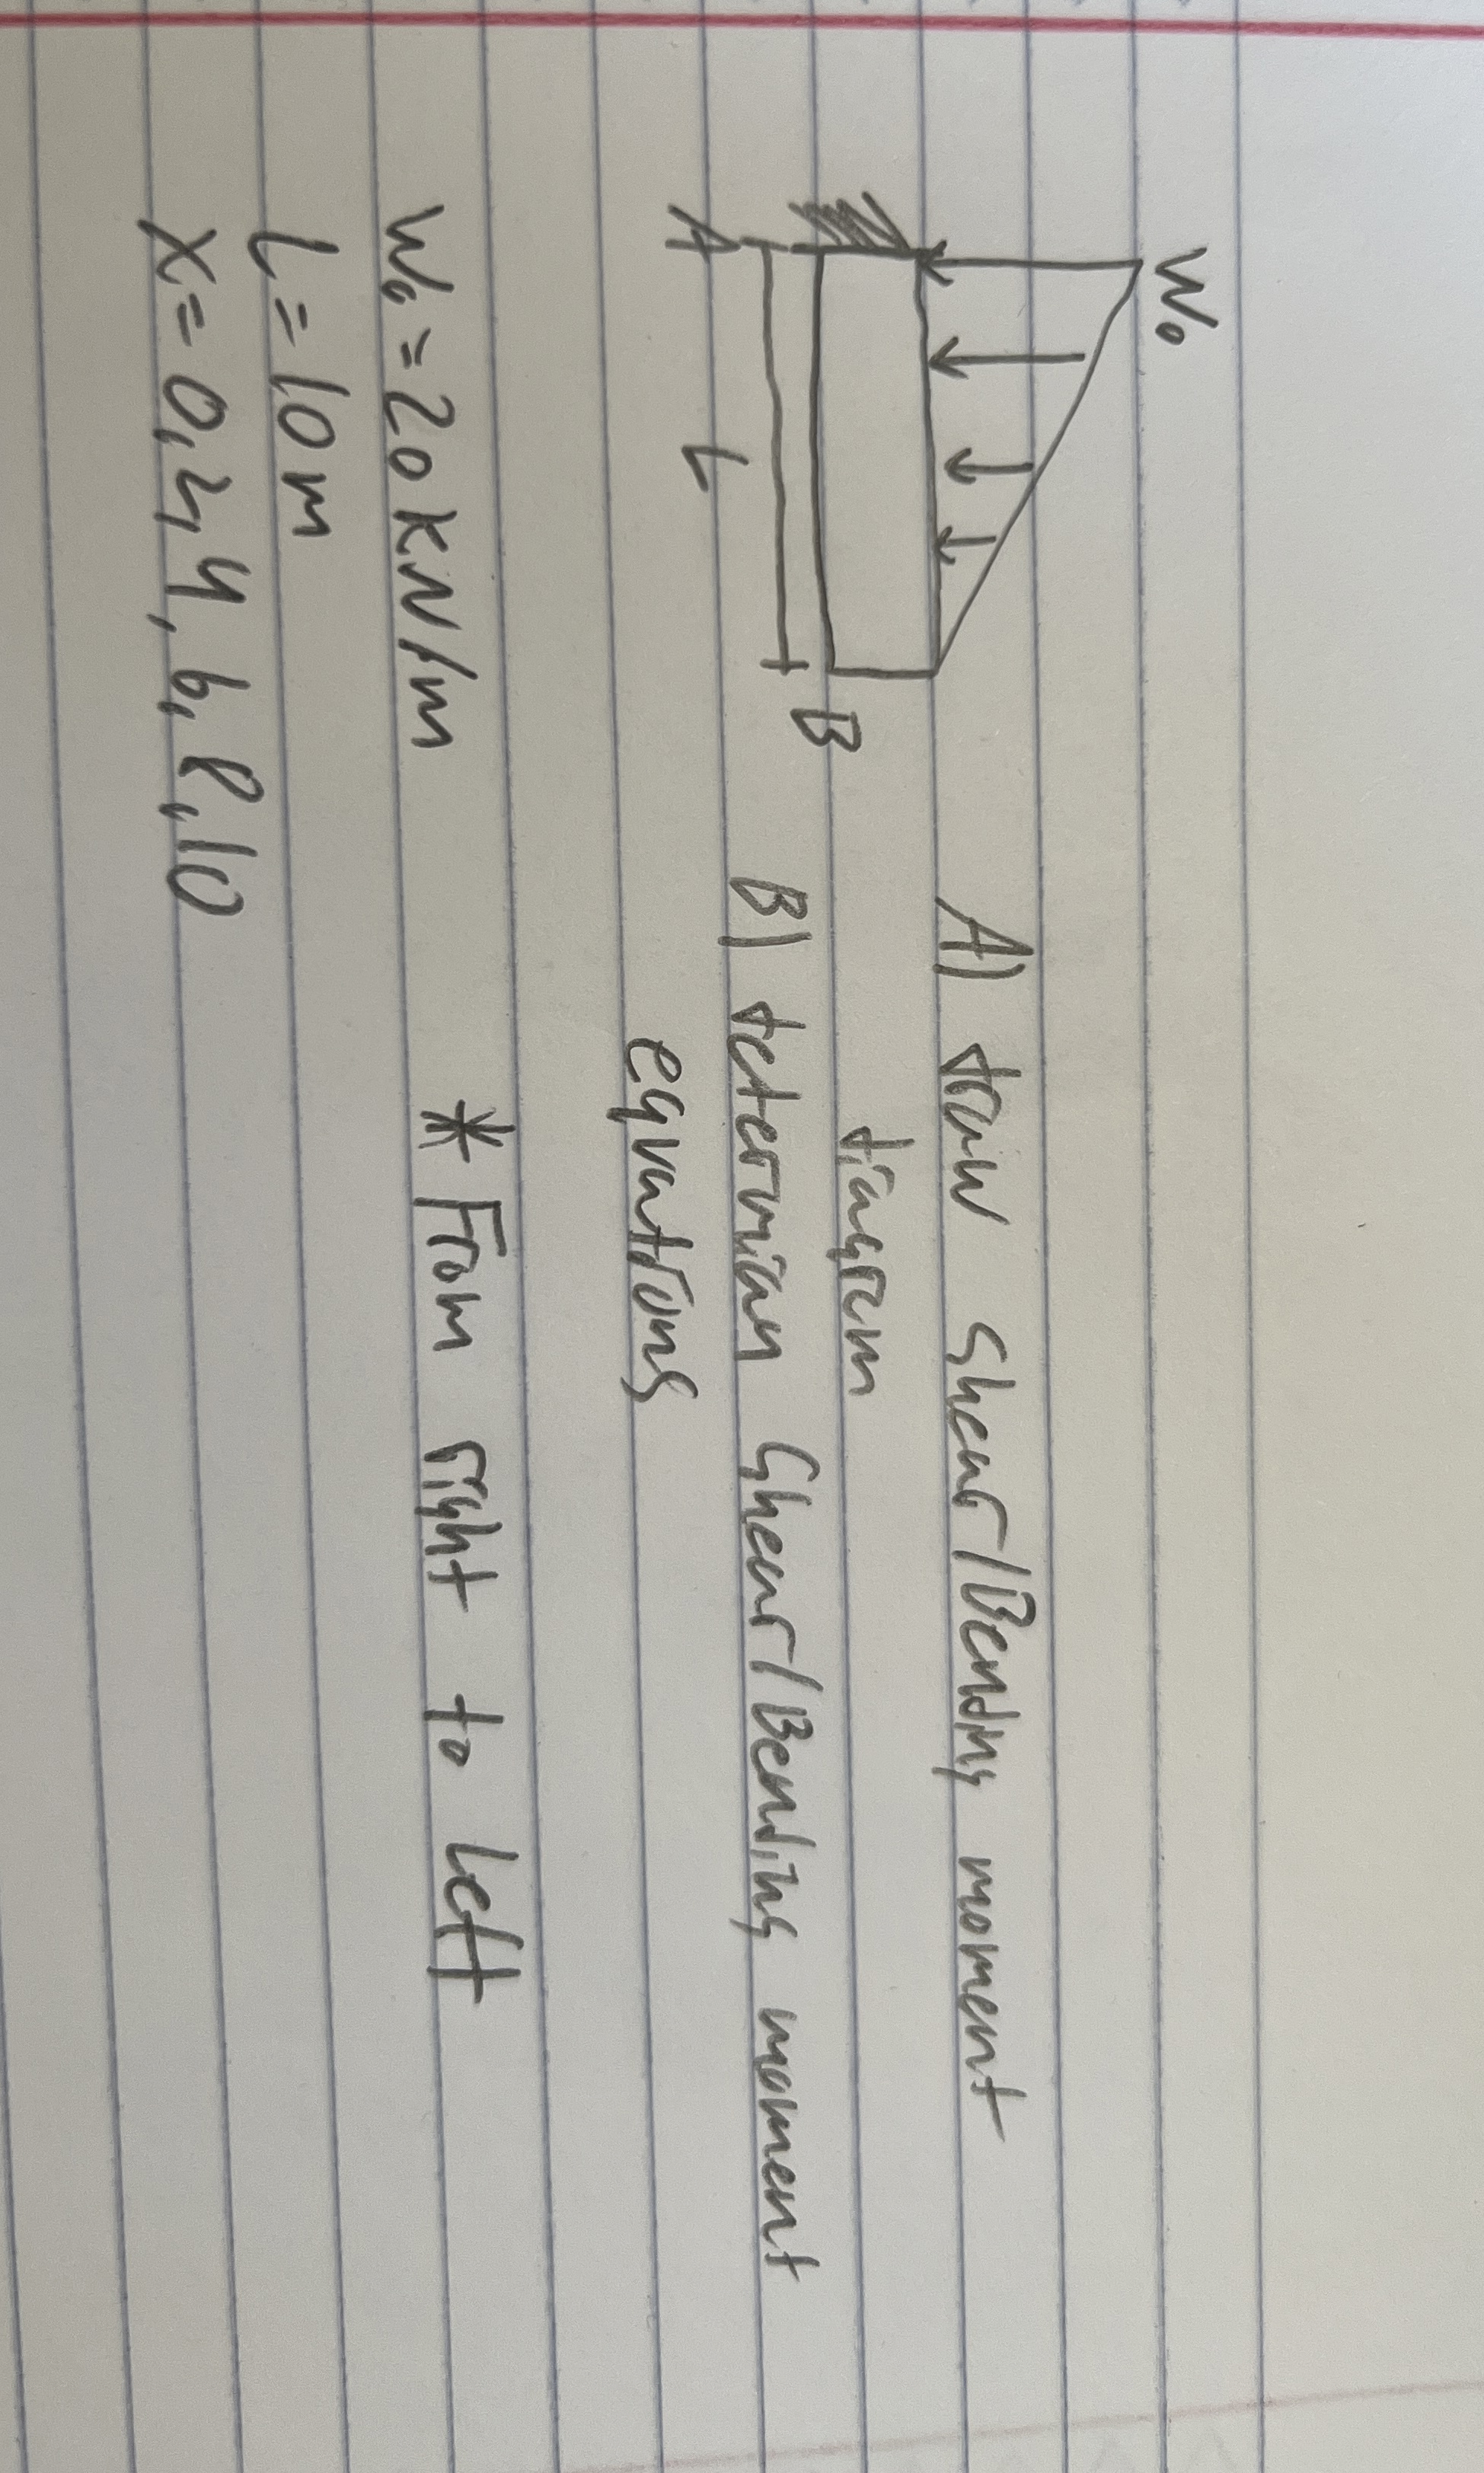 W₀
A) draw shear/Bending moment
diagram
A
L
B
B) determian shear/Bending moment
equations
W₀ = 20 kN/m
* From right to left
L = 10 m
X = 0, 2, 4, 6, 8, 10